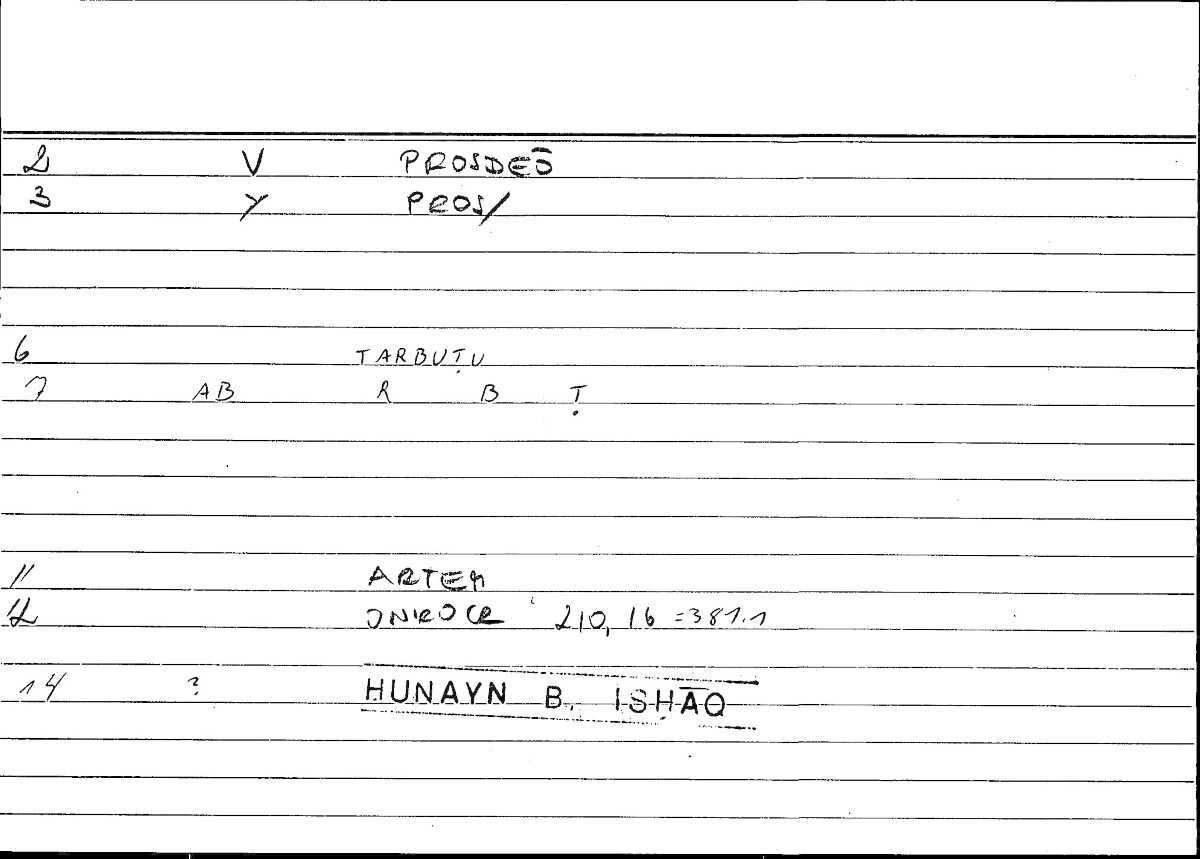 2 V PROSDEŌ
3 Y PROS/
6 TARBUṬU
7 AB R B Ṭ
11 ARTEM
12 ONIROCR 210, 16 = 381.1
14 ? HUNAYN B. ISḤĀQ